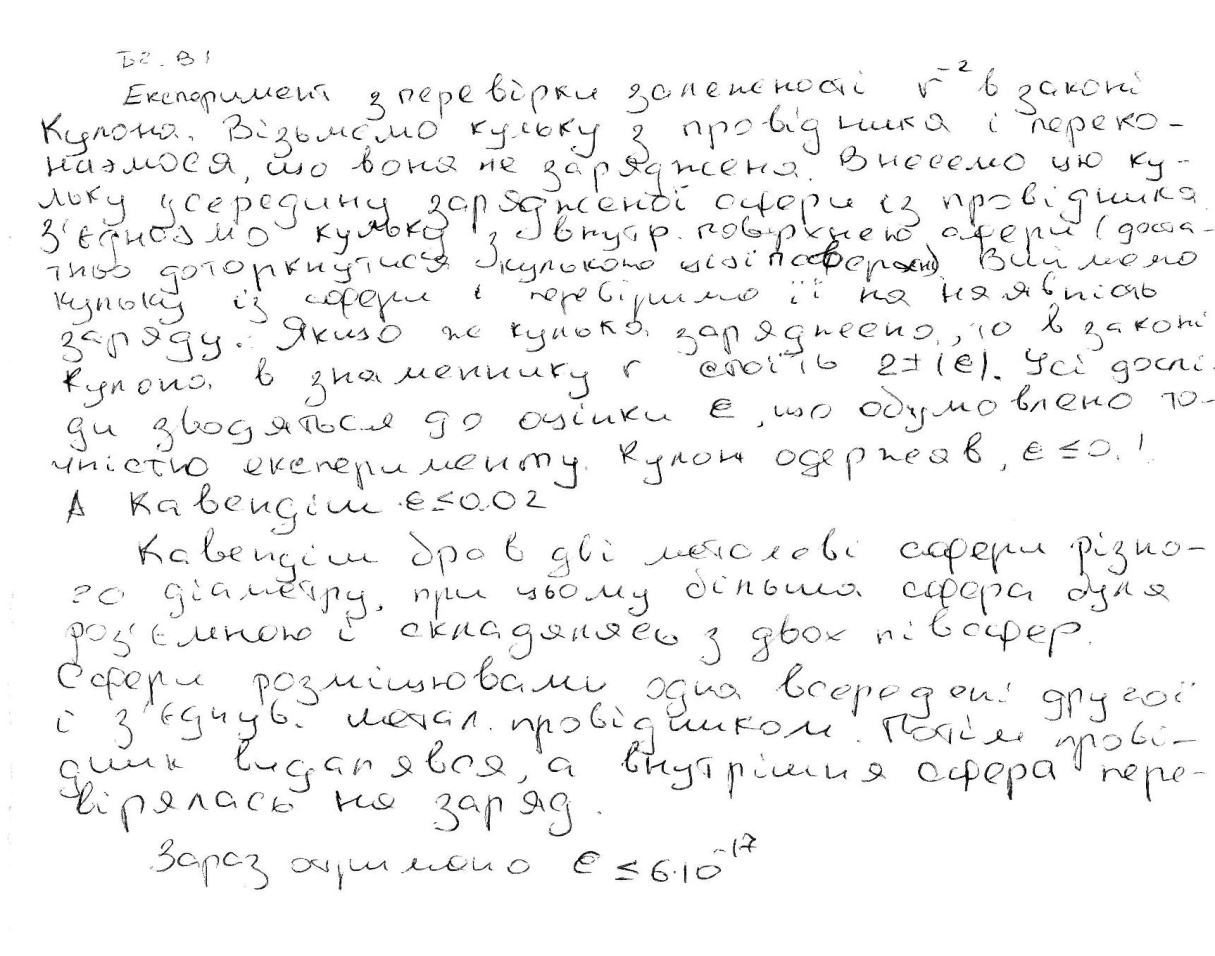 Б2. В1
Експеримент з перевірки залежності r⁻² в законі
Кулона. Візьмемо кульку з провідника і переко-
наємося, що вона не заряджена. Внесемо цю ку-
льку усередину зарядженої сфери із провідника.
З'єднаємо кульку з внутр. поверхнею сфери (доста-
тньо доторкнутися кулькою цієї поверхні). Виймемо
кульку із сфери і перевіримо її на наявність
заряду. Якщо ж кулька заряджена, то в законі
Кулона в знаменнику r стоїть 2±|ϵ|. Усі дослі-
ди зводяться до оцінки ϵ, що обумовлено то-
чністю експерименту. Кулон одержав, ϵ ≤ 0.1
А Кавендіш ϵ ≤ 0.02
Кавендіш брав дві металеві сфери різно-
го діаметру, при цьому більша сфера була
роз'ємною і складялясь з двох півсфер.
Сфери розміщювами одна всередені другої
і з'єднув. метал. провідником. Потім прові-
дник видалявся, а внутрішня сфера пере-
вірялась на заряд.
Зараз отримано ϵ ≤ 6·10⁻¹⁷